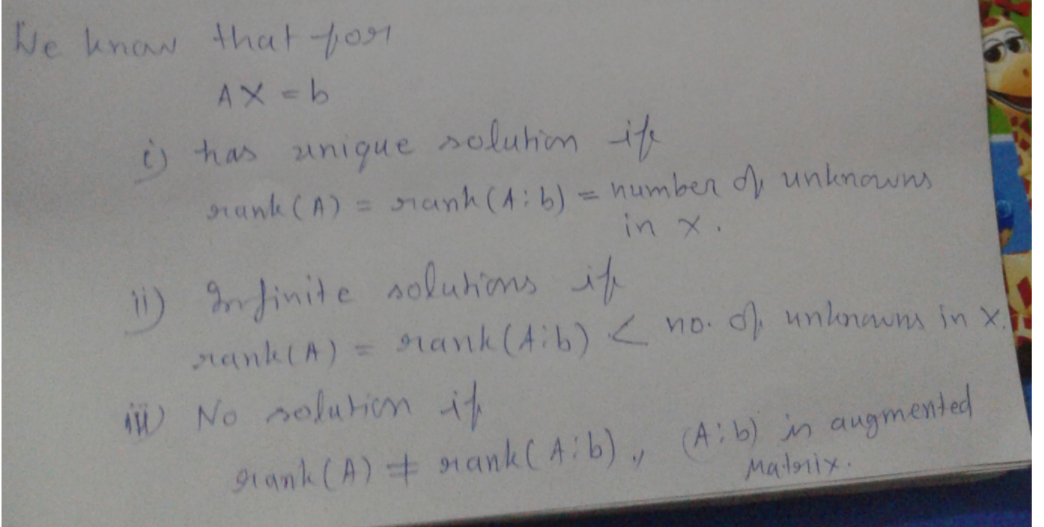 We know that for
AX = b
i) has unique solution if
rank(A) = rank(A:b) = number of unknowns
in x.
ii) Infinite solutions if
rank(A) = rank(A:b) < no. of unknowns in x.
iii) No solution if
rank(A) ≠ rank(A:b), (A:b) is augmented
Matrix.